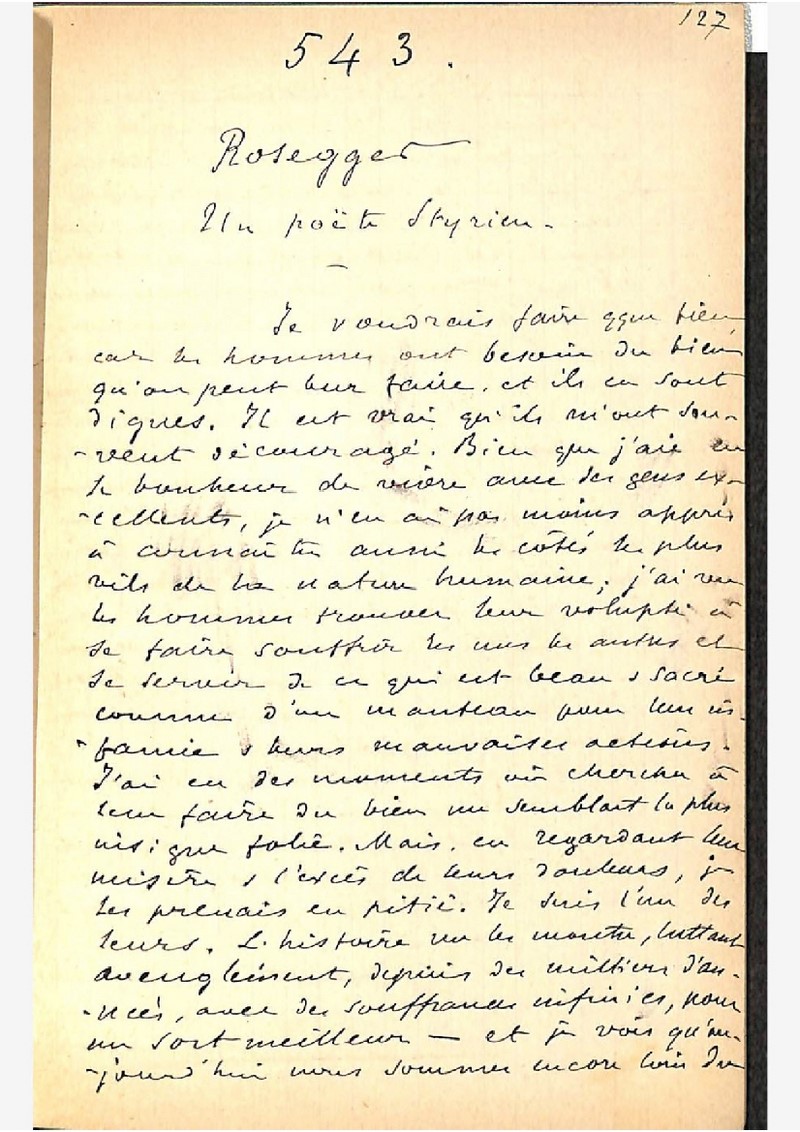 127
543.
Rosegger
Un poëte Styrien.
Je voudrais faire qque bien,
car les hommes ont besoin du bien
qu'on peut leur faire, et ils en sont
dignes. Il est vrai qu'ils m'ont sou-
-vent découragé. Bien que j'aie eu
le bonheur de vivre avec des gens ex-
-cellents, je n'en ai pas moins appris
à connaître aussi les côtés les plus
vils de la nature humaine; j'ai vu
les hommes trouver leur volupté à
se faire souffrir les uns les autres et
se servir de ce qui est beau & sacré
comme d'un manteau pour leur in-
-famie & leurs mauvaises actions.
J'ai eu des moments où chercher à
leur faire du bien me semblait la plus
insigne folie. Mais, en regardant leur
misère & l'excès de leurs douleurs, je
les prenais en pitié. Je suis l'un des
leurs. L'histoire me les montre, luttant
aveuglément, depuis des milliers d'an-
-nées, avec des souffrances infinies, pour
un sort meilleur — et je vois qu'au-
-jourd'hui nous sommes encore loin du